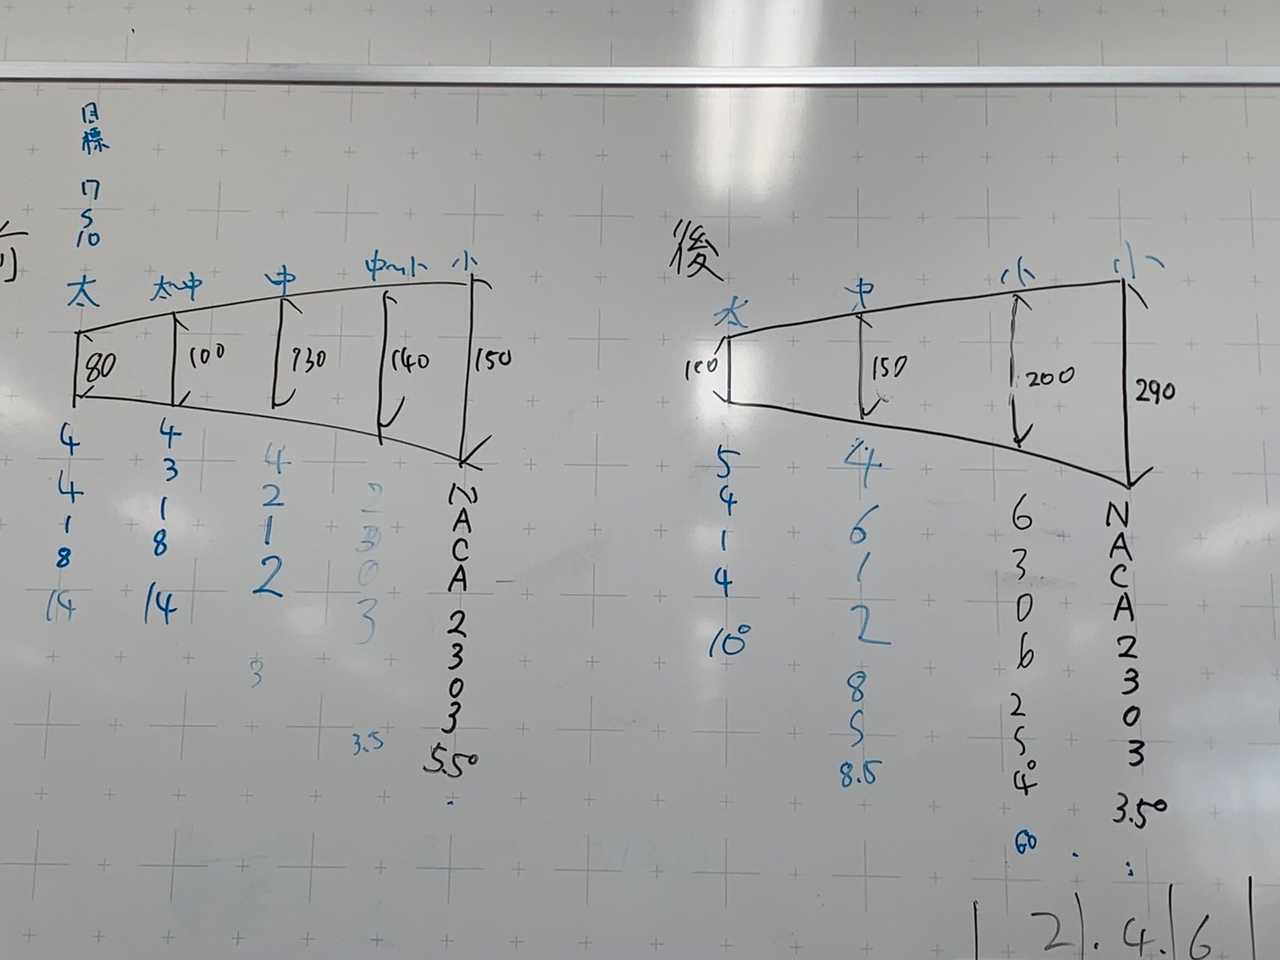 目標
17
5
10
前
太
太~中
中
中~小
小
80
100
130
140
150
4
4
1
8
14
4
3
1
8
14
4
2
1
2
3
2
3
0
3
3.5
NACA
2303
5.5°
後
太
中
小
小
100
150
200
290
5
4
1
4
10°
4
6
1
2
8
5
8.5
6
3
0
6
2
5
4°
60
NACA
2303
3.5°
2).4.6